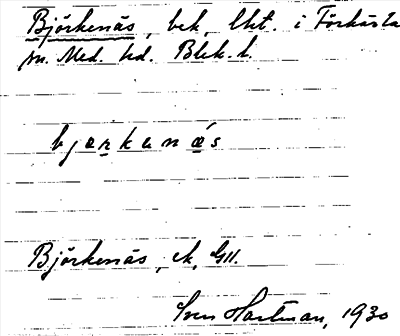 Björkenäs, bek. lht. i Förkärla
sn. Med. hd. Blek. l.
bjarkunás
Björkenäs, ek, GII.
Sven Hartman, 1930